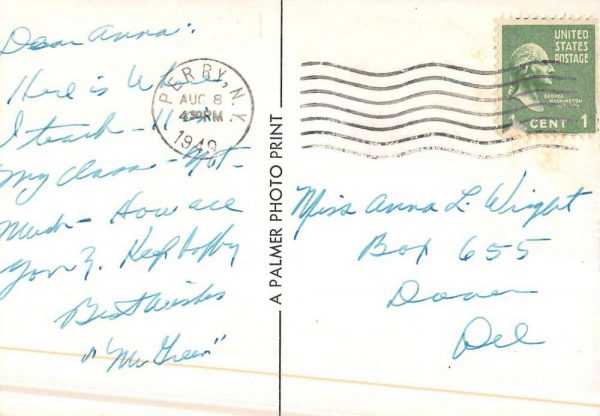 Dear Anna:
Here is Where
I teach - 11 in
my class - Not
Much - How are
you? Keep Happy
Best Wishes
"Mr Green"
PERRY, N.Y.
AUG 8
4 30 PM
1949
A PALMER PHOTO PRINT
UNITED
STATES
POSTAGE
GEORGE
WASHINGTON
1 CENT 1
Miss Anna L. Wright
Box 655
Dover
Del